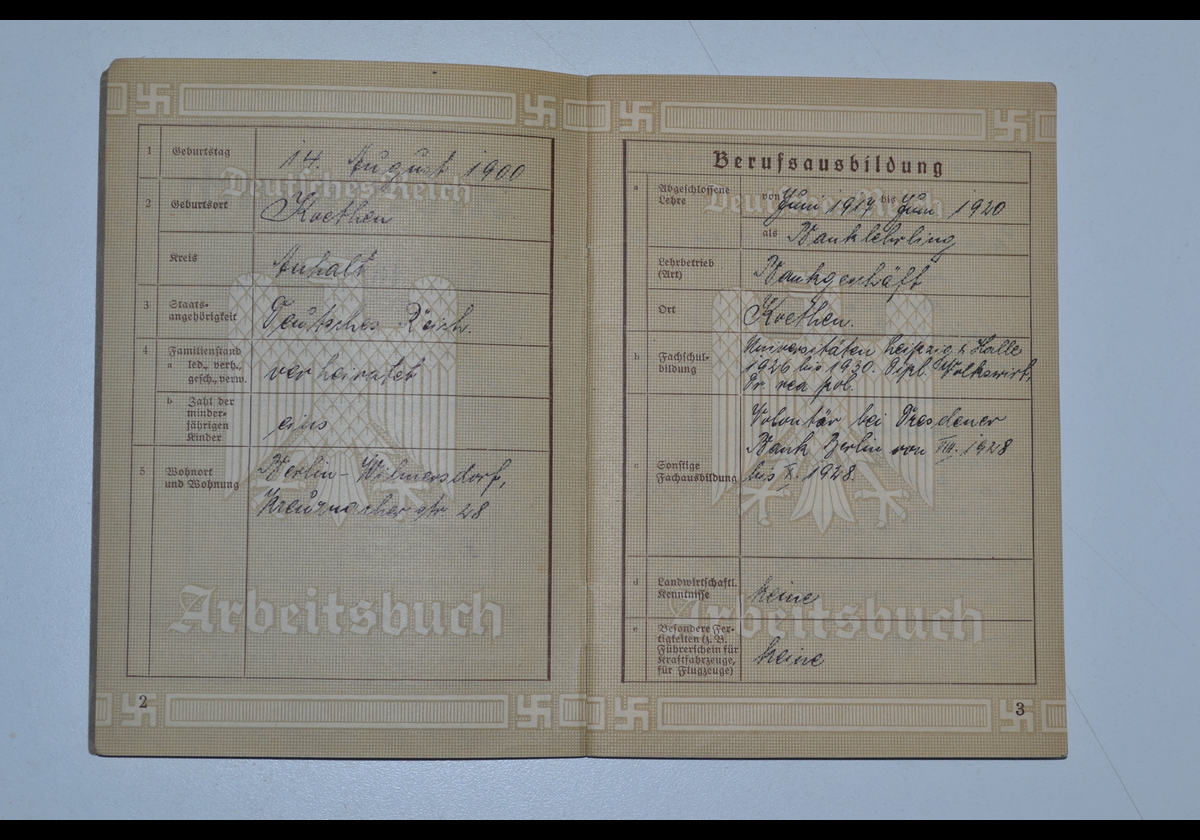 1 Geburtstag 14. August 1900
Deutsches Reich
2 Geburtsort Koethen
Kreis Anhalt
3 Staats-
angehörigkeit Deutsches Reich.
4 Familienstand
a led., verh.,
gesch., verw. verheiratet
b Zahl der
minder-
jährigen
Kinder eins
5 Wohnort
und Wohnung Berlin-Wilmersdorf,
Kreuznacher str 28
Arbeitsbuch
2
Berufsausbildung
a Abgeschlossene
Lehre von Juni 1917 bis Juni 1920
Deutsches Reich
als Banklehrling
Lehrbetrieb
(Art) Bankgeschäft
Ort Koethen.
b Fachschul-
bildung Universitäten Leipzig & Halle
1926 bis 1930. Dipl. Volkswirt,
Dr. rer. pol.
c Sonstige
Fachausbildung Volontär bei Dresdener
Bank Berlin von VIII. 1928
bis X. 1928.
d Landwirtschaftl.
Kenntnisse keine
Arbeitsbuch
e Besondere Fer-
tigkeiten (z. B.
Führerschein für
Kraftfahrzeuge,
für Flugzeuge) keine
3